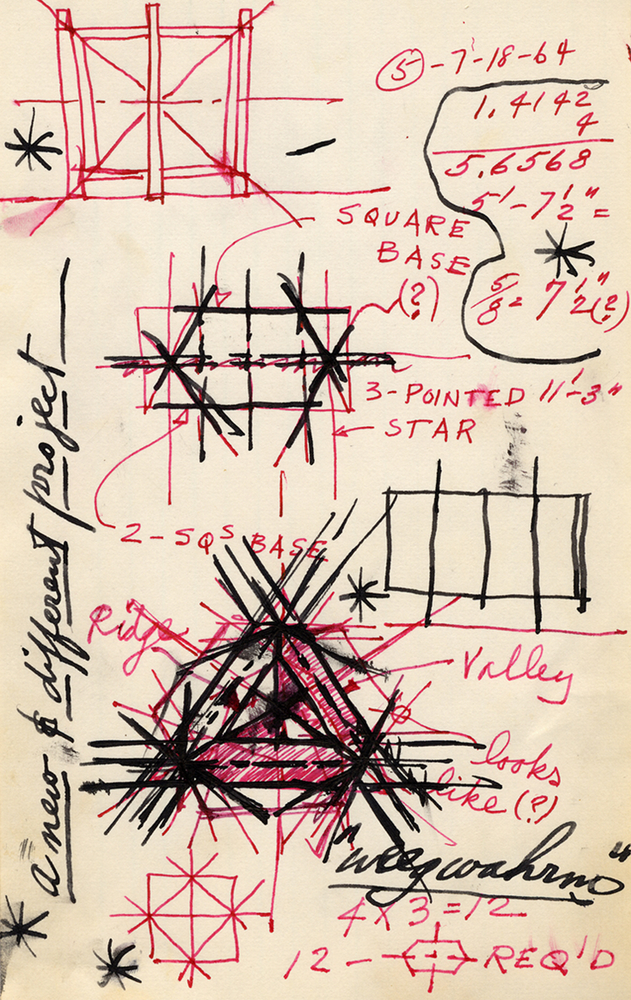 5 - 7-18-64
1.4142
4
5.6568
5'-7 1/2" =
5/8 = 7 1/2"(?)
SQUARE
BASE
(?)
3-POINTED 11'-3"
STAR
2-SQS BASE
Ridge
Valley
looks
like (?)
"weegwahrmo"
4 X 3 = 12
12 - REQ'D
a new & different project